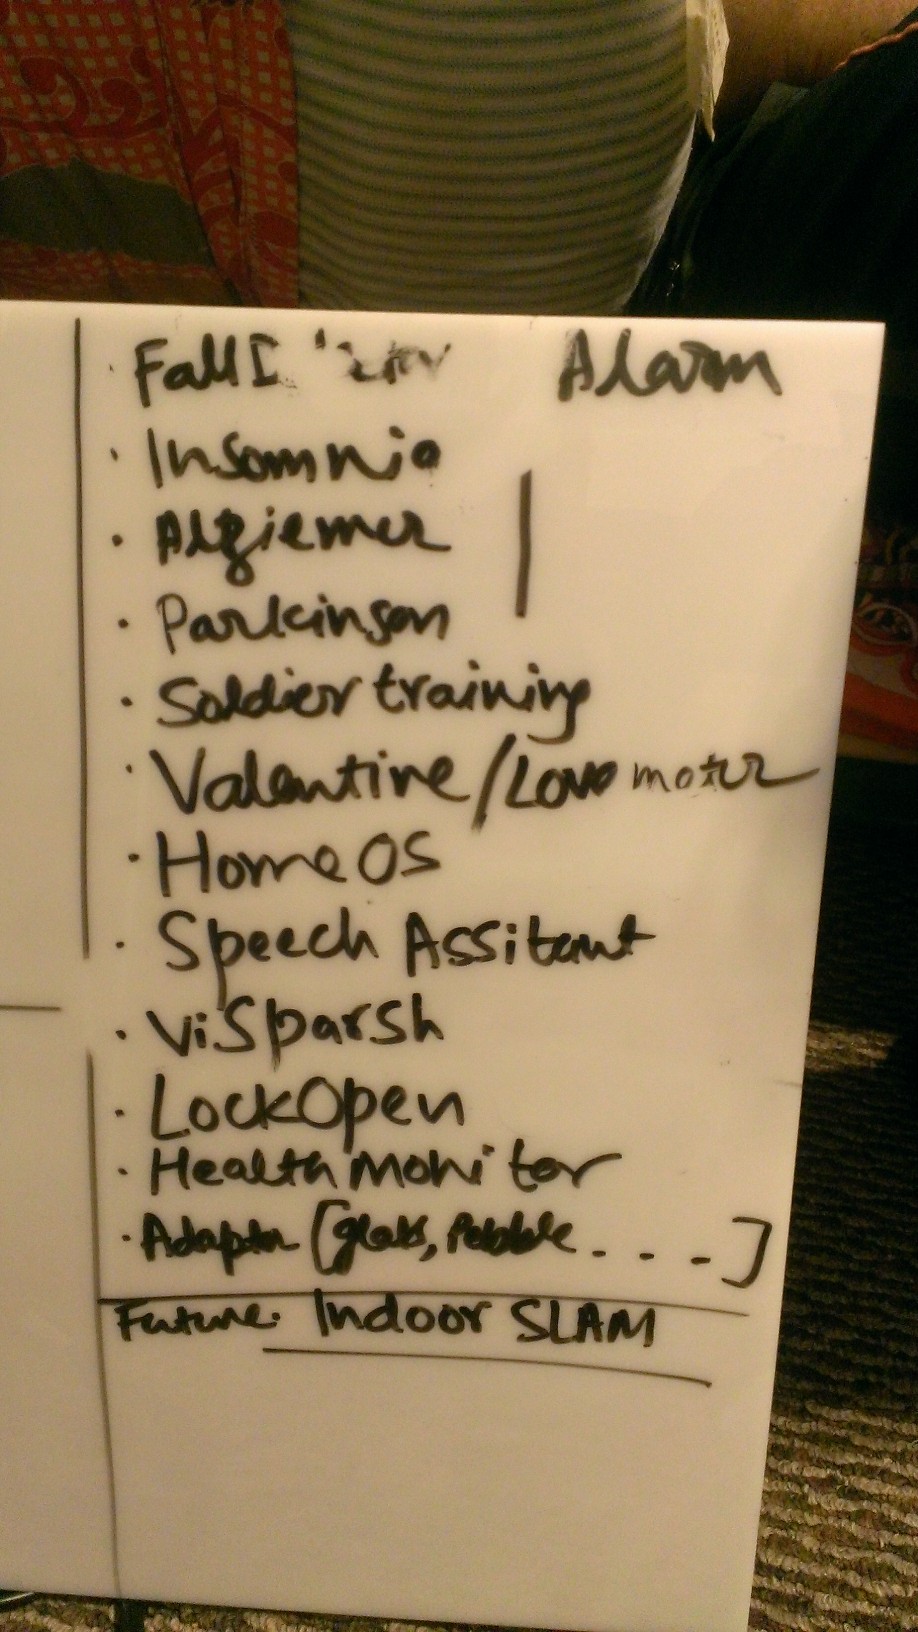 Alarm
· Insomnia
· Alziemer
· Parkinson
· Soldier training
· Valentine/Love meter
· Home OS
· Speech Assitant
· ViSparsh
· LockOpen
· Health monitor
· Adapter [glass, Pebble . . . .]
Future: Indoor SLAM